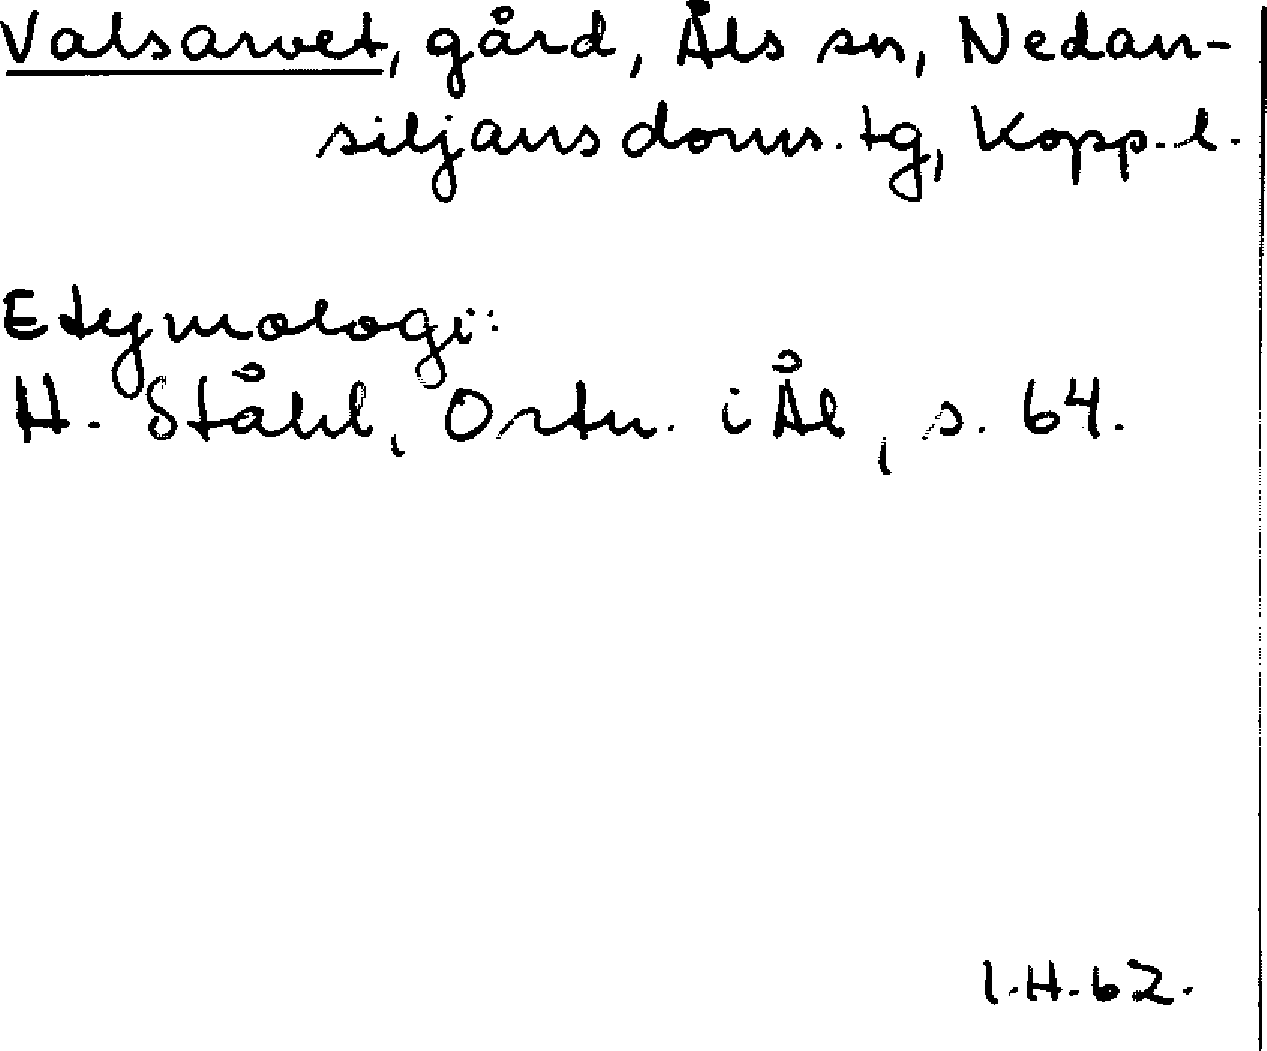 Valsarvet, gård, Åls sn, Nedan-
siljans doms. tg, Kopp. l.
Etymologi:
H. Ståhl, Ortn. i Ål, s. 64.
I.H. 62.